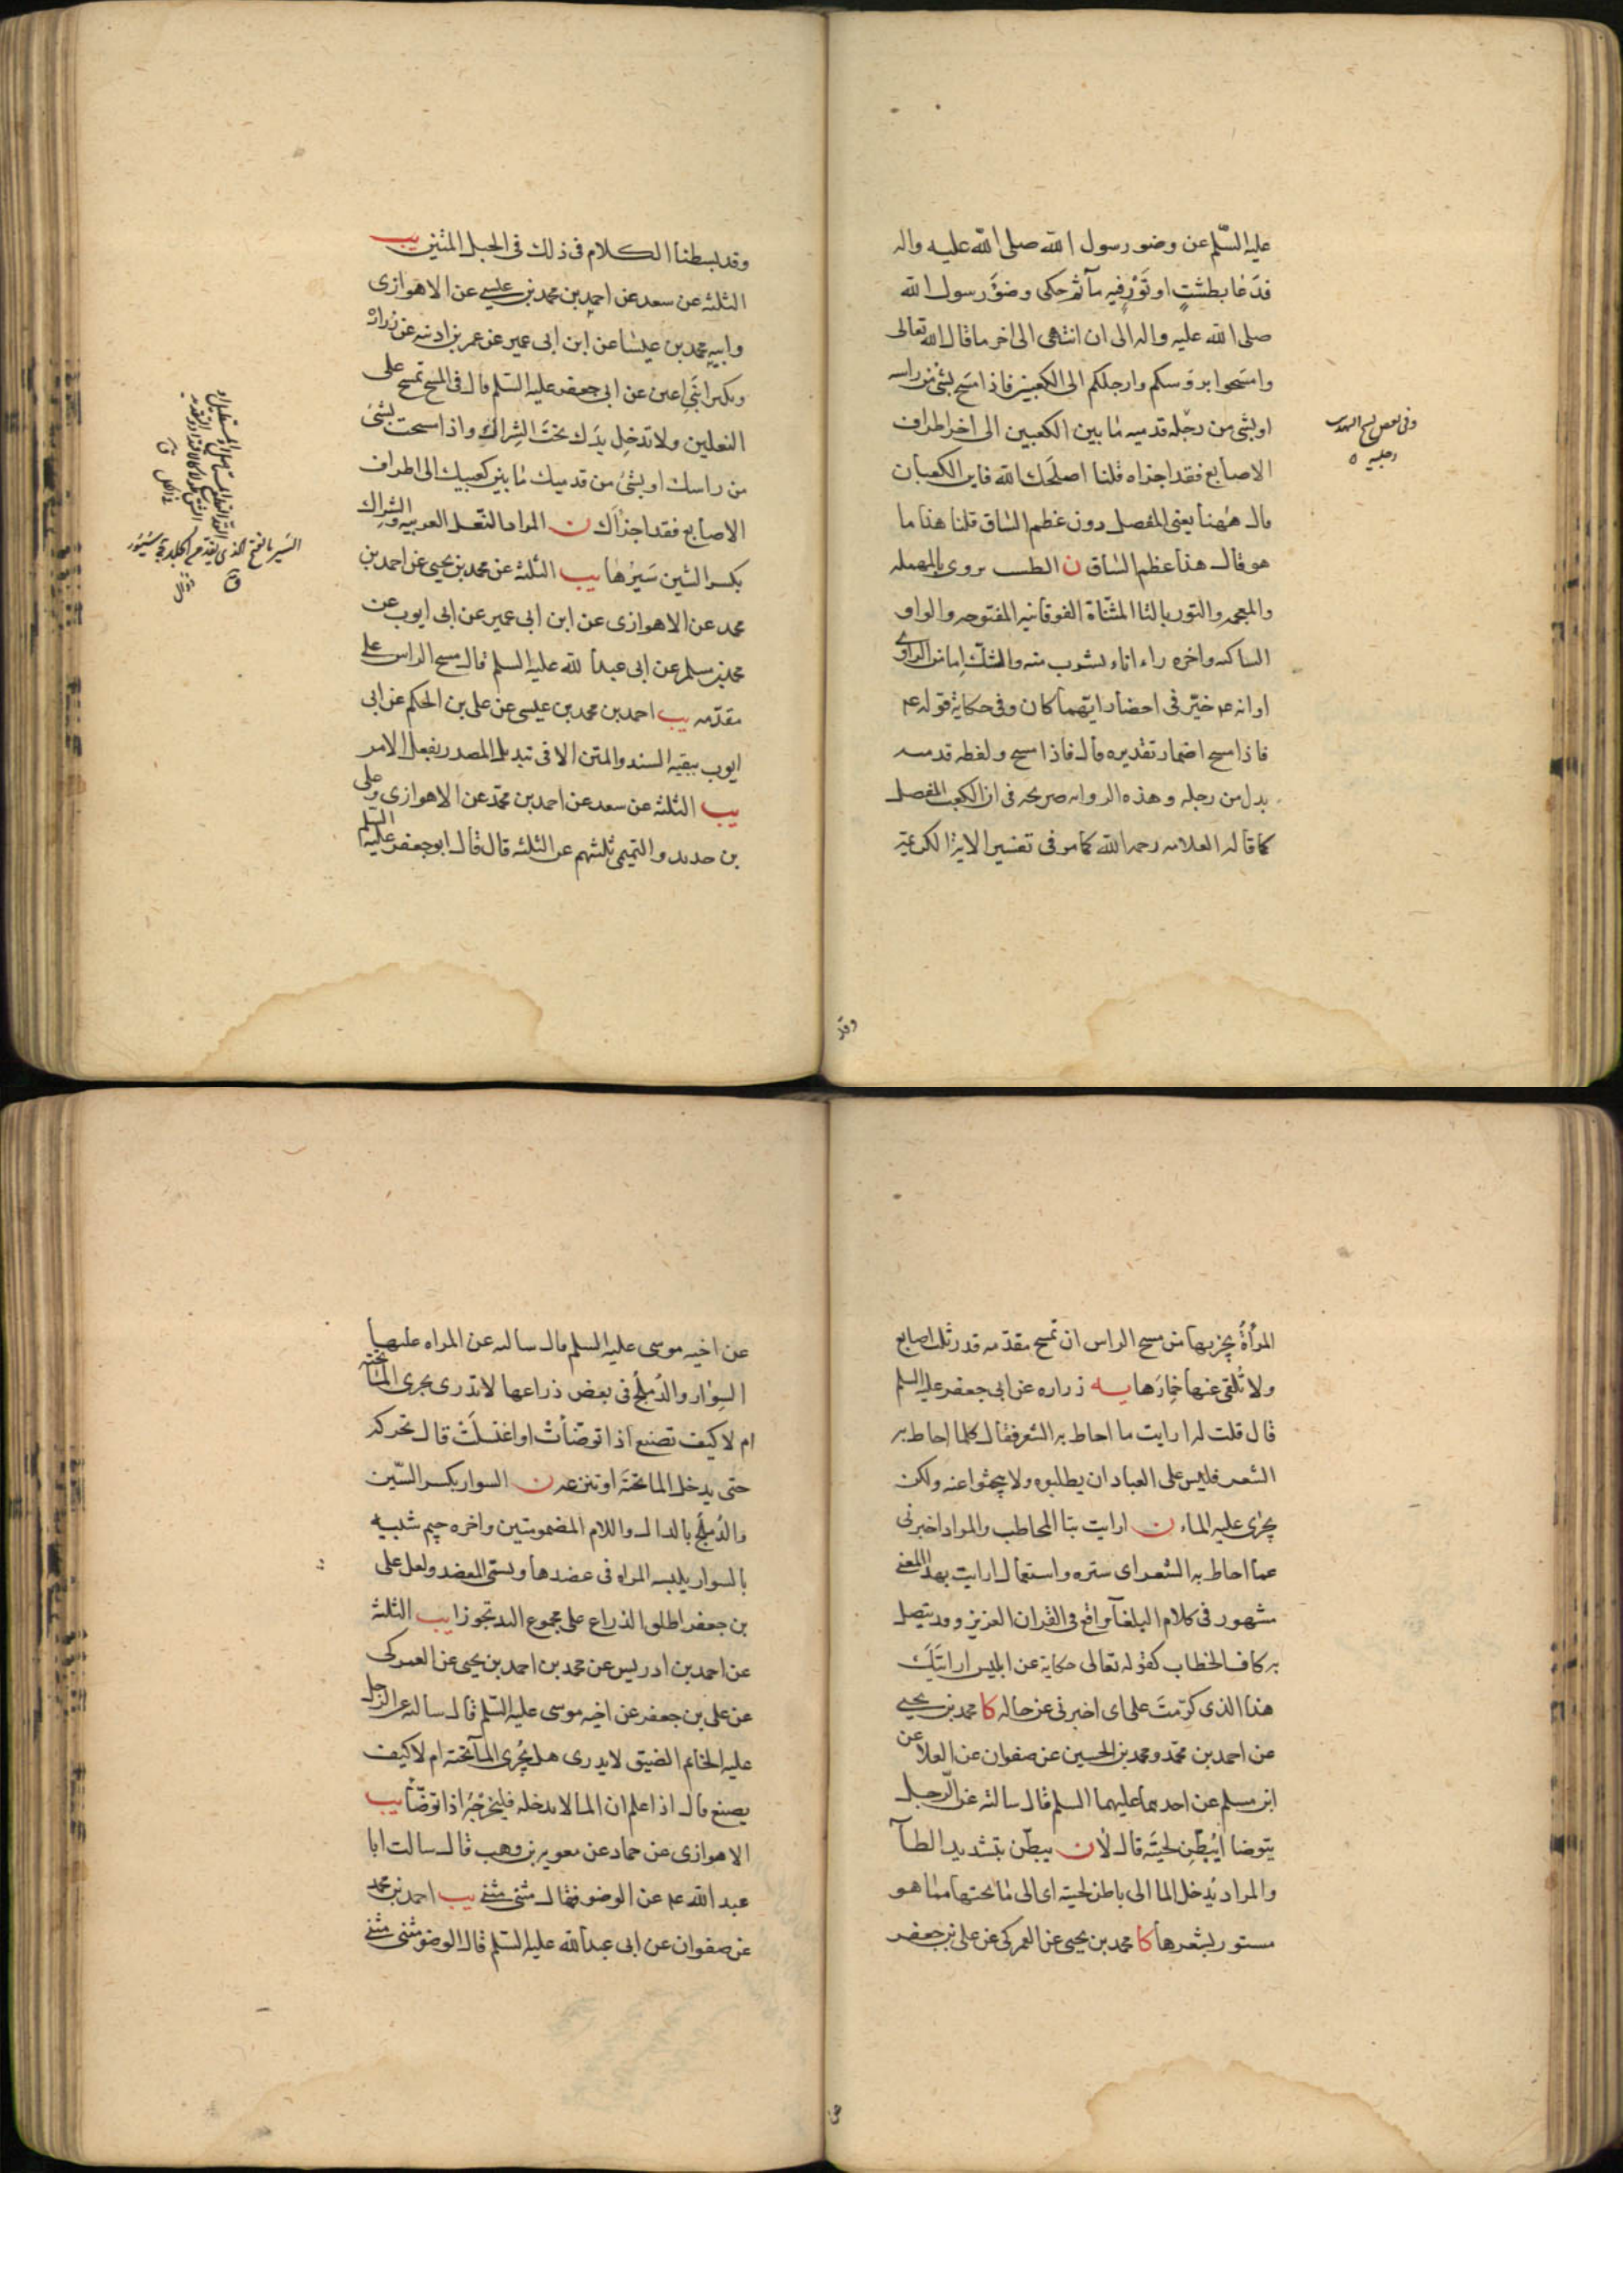 عليه السّلم عن وضوء رسول الله صلى الله عليه واله
فدعا بطشتٍ او تَوْرٍ فيه مآثم حكى وضؤَ رسول الله
صلى الله عليه واله الى ان انتهى الى اخر ما قال الله تعالى
وامسحوا بروسكم وارجلكم الى الكعبين فاذا مسح بشئ من راسه
او بشى من رجله قدميه ما بين الكعبين الى اخر اطراف
الاصابع فقد اجزاه قلنا اصلحك الله فاين الكعبان
قال ههنا يعنى المفصل دون عظم الساق قلنا هذا ما
هو قال هذا عظم الساق ن الطست يروى بالمهمله
والمعجمه والتور بالتا المثناة الفوقانيه المفتوحه والواو
الساكنه واخره راء اناء يشرب منه والشك اما من الراوى
او انه عم خيّر فى احضار ايّهما كان وفى حكاية قوله عم
فاذا مسح اضمار تقديره قال فاذا مسح ولفظه قدميه
بدل من رجله وهذه الروايه صريحه فى ان الكعب المفصل
كما قاله العلامه رحمه الله كما مر فى تفسير الاية الكريمة
وفى بعض نسخ التهذيب
رجليه
وقد
وقد بسطنا الكلام فى ذلك فى الحبل المتين يب
الثلثه عن سعد عن احمد بن محمد بن عيسى عن الاهوازى
وابيه محمد بن عيسى عن ابن ابى عمير عن عمر بن اذينه عن زراره
وبكير ابنَي اعين عن ابى جعفر عليه السّلم قال فى المسح تمسح على
النعلين ولا تدخل يدك تحتَ الشِراك واذا مسحت بشئ
من راسك او بشئ من قدميك ما بين كعبيك الى اطراف
الاصابع فقد اجزأك ن المراد النعل العربيه والشراك
بكسر الشين سَيرها يب الثلثه عن محمد بن يحيى عن احمد بن
محمد عن الاهوازى عن ابن ابى عمير عن ابى ايوب عن
محمد بن مسلم عن ابى عبد الله عليه السلم قال مسح الراس على
مقدّمه يب احمد بن محمد بن عيسى عن على بن الحكم عن ابى
ايوب ببقيه السند والمتن الا فى تبديل المصدر بفعل الامر
يب الثلثه عن سعد عن احمد بن محمّد عن الاهوازى وعلى
بن حديد والتميمى ثلثتهم عن الثلثه قال قال ابو جعفر عليه السّلم
السَير بالفتح الذى يقد من الجلد ج سُيُور
المرأةُ يجزيها من مسح الراس ان تمسح مقدّمه قدر ثلث اصابع
ولا تُلقى عنها خِمارَها يه زراره عن ابى جعفر عليه السلم
قال قلت له ارايت ما احاط به الشعر فقال كلما احاط به
الشعر فليس على العباد ان يطلبوه ولا يبحثوا عنه ولكن
يجرى عليه الماء ن ارايت بتا المخاطب والمراد اخبرنى
عما احاط به الشعر اى ستره واستعمال ارايت بهذا المعنى
مشهور فى كلام البلغآ واقع فى القران العزيز وقد يتصل
به كاف الخطاب كقوله تعالى حكاية عن ابليس ارايتَكَ
هذا الذى كرّمتَ على اى اخبرنى عن حاله كا محمد بن يحيى
عن احمد بن محمّد ومحمد بن الحسين عن صفوان عن العلا عن
ابن مسلم عن احدهما عليهما السلم قال سالته عن الرّجل
يتوضا ايُبَطِّن لحيتَه قال لا ن يبطّن بتشديد الطآ
والمراد يُدخل الما الى باطن لحيته اى الى ما تحتها مما هو
مستور بشعرها كا محمد بن يحيى عن العمركى عن على بن جعفر
عن اخيه موسى عليه السلم قال سالته عن المراه عليها
السِوار والدُملُج فى بعض ذراعها لا تدرى يجرى المآ تحته
ام لا كيف تصنع اذا توضّأتْ او اغتسلَتْ قال تحركه
حتى يدخل الما تحتَه او تنزعه ن السوار بكسر السّين
والدُملُج بالدال واللام المضمومتين واخره جيم شبيه
بالسوار يلبسه المراه فى عضدها ويسمّى المعضد ولعل على
بن جعفر اطلق الذراع على مجموع اليد تجوزا يب الثلثه
عن احمد بن ادريس عن محمد بن احمد بن يحيى عن العمركى
عن على بن جعفر عن اخيه موسى عليه السّلم قال سالته عن الرّجل
عليه الخاتم الضيّق لا يدرى هل يجرى المآ تحته ام لا كيف
يصنع قال اذا علم ان الما لا يدخله فليخرجْهُ اذا توضّأ يب
الاهوازى عن حماد عن معويه بن وهب قال سالت ابا
عبد الله عم عن الوضو فقال مثنى مثنى يب احمد بن محمد
عن صفوان عن ابى عبد الله عليه السّلم قال الوضو مثنى مثنى